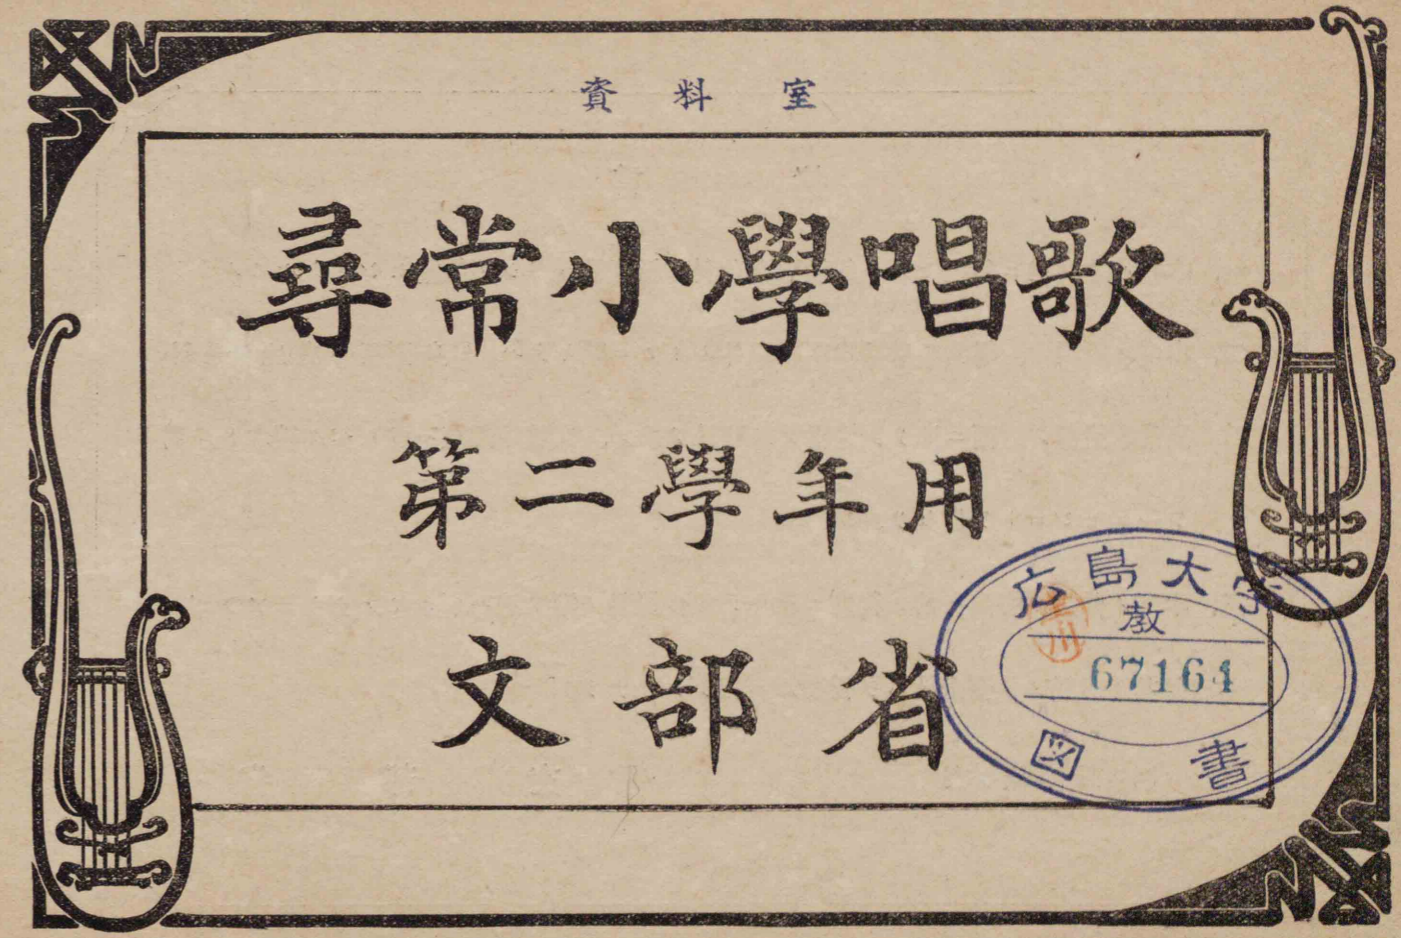 資料室
尋常小學唱歌
第二學年用
文部省
広島大学
教
67164
図書